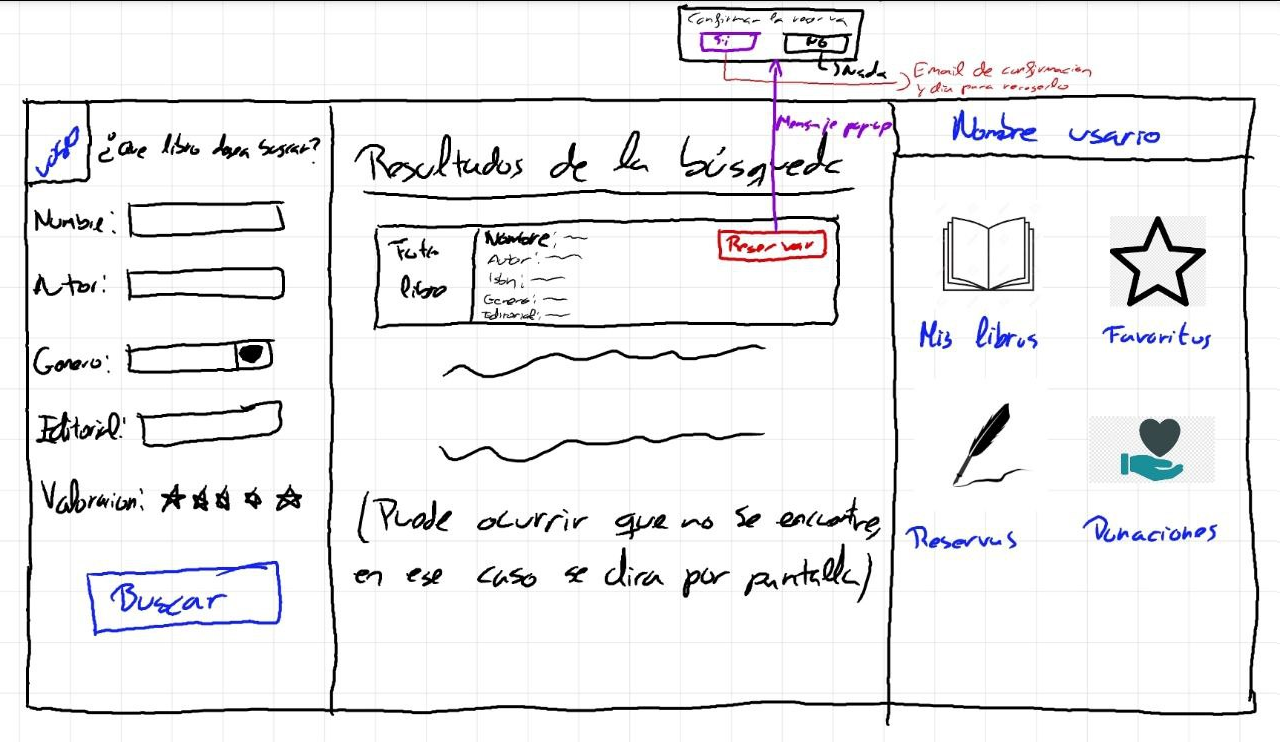 Confirmar la reserva
Si
No
Nada
Email de confirmacion
y dia para recogerlo
Mensaje pop up
Logo
¿Que libro desea buscar?
Nombre:
Autor:
Genero:
Editorial:
Valoracion:
Buscar
Resultados de la búsqueda
Foto
libro
Nombre:
Autor:
Isbn:
Genero:
Editorial:
Reservar
(Puede ocurrir que no se encontre,
en ese caso se dira por pantalla)
Nombre usario
Mis libros
Favoritos
Reservas
Donaciones